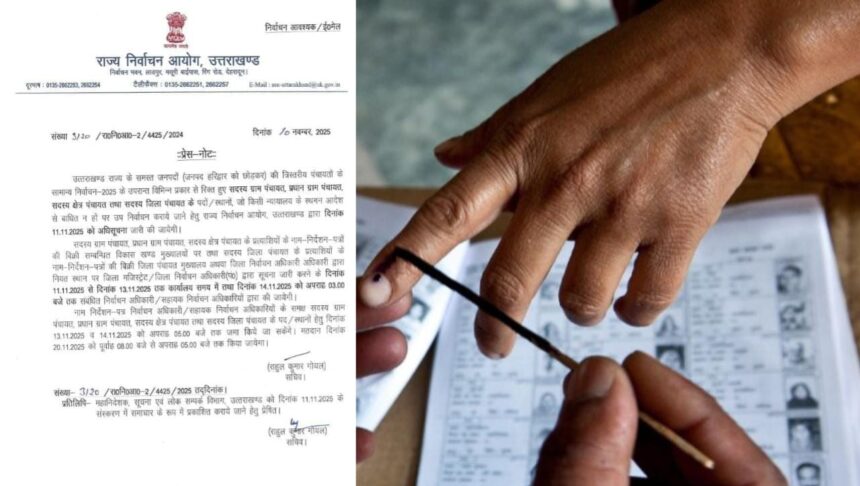 निर्वाचन आवश्यक/ई0मेल
राज्य निर्वाचन आयोग, उत्तराखण्ड
निर्वाचन भवन, लाडपुर, मसूरी बाईपास, रिंग रोड, देहरादून।
दूरभाष : 0135-2662253, 2662254 टैलीफैक्स : 0135-2662251, 2662257 E-Mail : sec-uttarakhand@uk.gov.in
संख्या 3120 /रा0नि0आ0-2/4425/2024 दिनांक 10 नवम्बर, 2025
::प्रेस-नोट::
उत्तराखण्ड राज्य के समस्त जनपदों (जनपद हरिद्वार को छोड़कर) की त्रिस्तरीय पंचायतों के
सामान्य निर्वाचन-2025 के उपरान्त विभिन्न प्रकार से रिक्त हुए सदस्य ग्राम पंचायत, प्रधान ग्राम पंचायत,
सदस्य क्षेत्र पंचायत तथा सदस्य जिला पंचायत के पदों/स्थानों, जो किसी न्यायालय के स्थगन आदेश
से बाधित न हो पर उप निर्वाचन कराये जाने हेतु राज्य निर्वाचन आयोग, उत्तराखण्ड द्वारा दिनांक
11.11.2025 को अधिसूचना जारी की जायेगी।
सदस्य ग्राम पंचायत, प्रधान ग्राम पंचायत, सदस्य क्षेत्र पंचायत के प्रत्याशियों के नाम-निर्देशन-पत्रों
की बिक्री सम्बन्धित विकास खण्ड मुख्यालयों पर तथा सदस्य जिला पंचायत के प्रत्याशियों के
नाम-निर्देशन-पत्रों की बिक्री जिला पंचायत मुख्यालय अथवा जिला निर्वाचन अधिकारी द्वारा
नियत स्थान पर जिला मजिस्ट्रेट/जिला निर्वाचन अधिकारी(पं0) द्वारा सूचना जारी करने के दिनांक
11.11.2025 से दिनांक 13.11.2025 तक कार्यालय समय में तथा दिनांक 14.11.2025 को अपराह्न 03.00
बजे तक संबंधित निर्वाचन अधिकारी/सहायक निर्वाचन अधिकारियों द्वारा की जायेगी।
नाम निर्देशन-पत्र निर्वाचन अधिकारी/सहायक निर्वाचन अधिकारियों के समक्ष सदस्य ग्राम
पंचायत, प्रधान ग्राम पंचायत, सदस्य क्षेत्र पंचायत तथा सदस्य जिला पंचायत के पद/स्थानों हेतु दिनांक
13.11.2025 व 14.11.2025 को अपराह्न 05.00 बजे तक जमा किये जा सकेंगे। मतदान दिनांक
20.11.2025 को पूर्वाह्न 08.00 बजे से अपराह्न 05.00 बजे तक किया जायेगा।
(राहुल कुमार गोयल)
सचिव।
संख्या- 3120 /रा0नि0आ0-2/4425/2025 तद्दिनांक।
प्रतिलिपि- महानिदेशक, सूचना एवं लोक सम्पर्क विभाग, उत्तराखण्ड को दिनांक 11.11.2025 के
संस्करण में समाचार के रूप में प्रकाशित कराये जाने हेतु प्रेषित।
(राहुल कुमार गोयल)
सचिव।